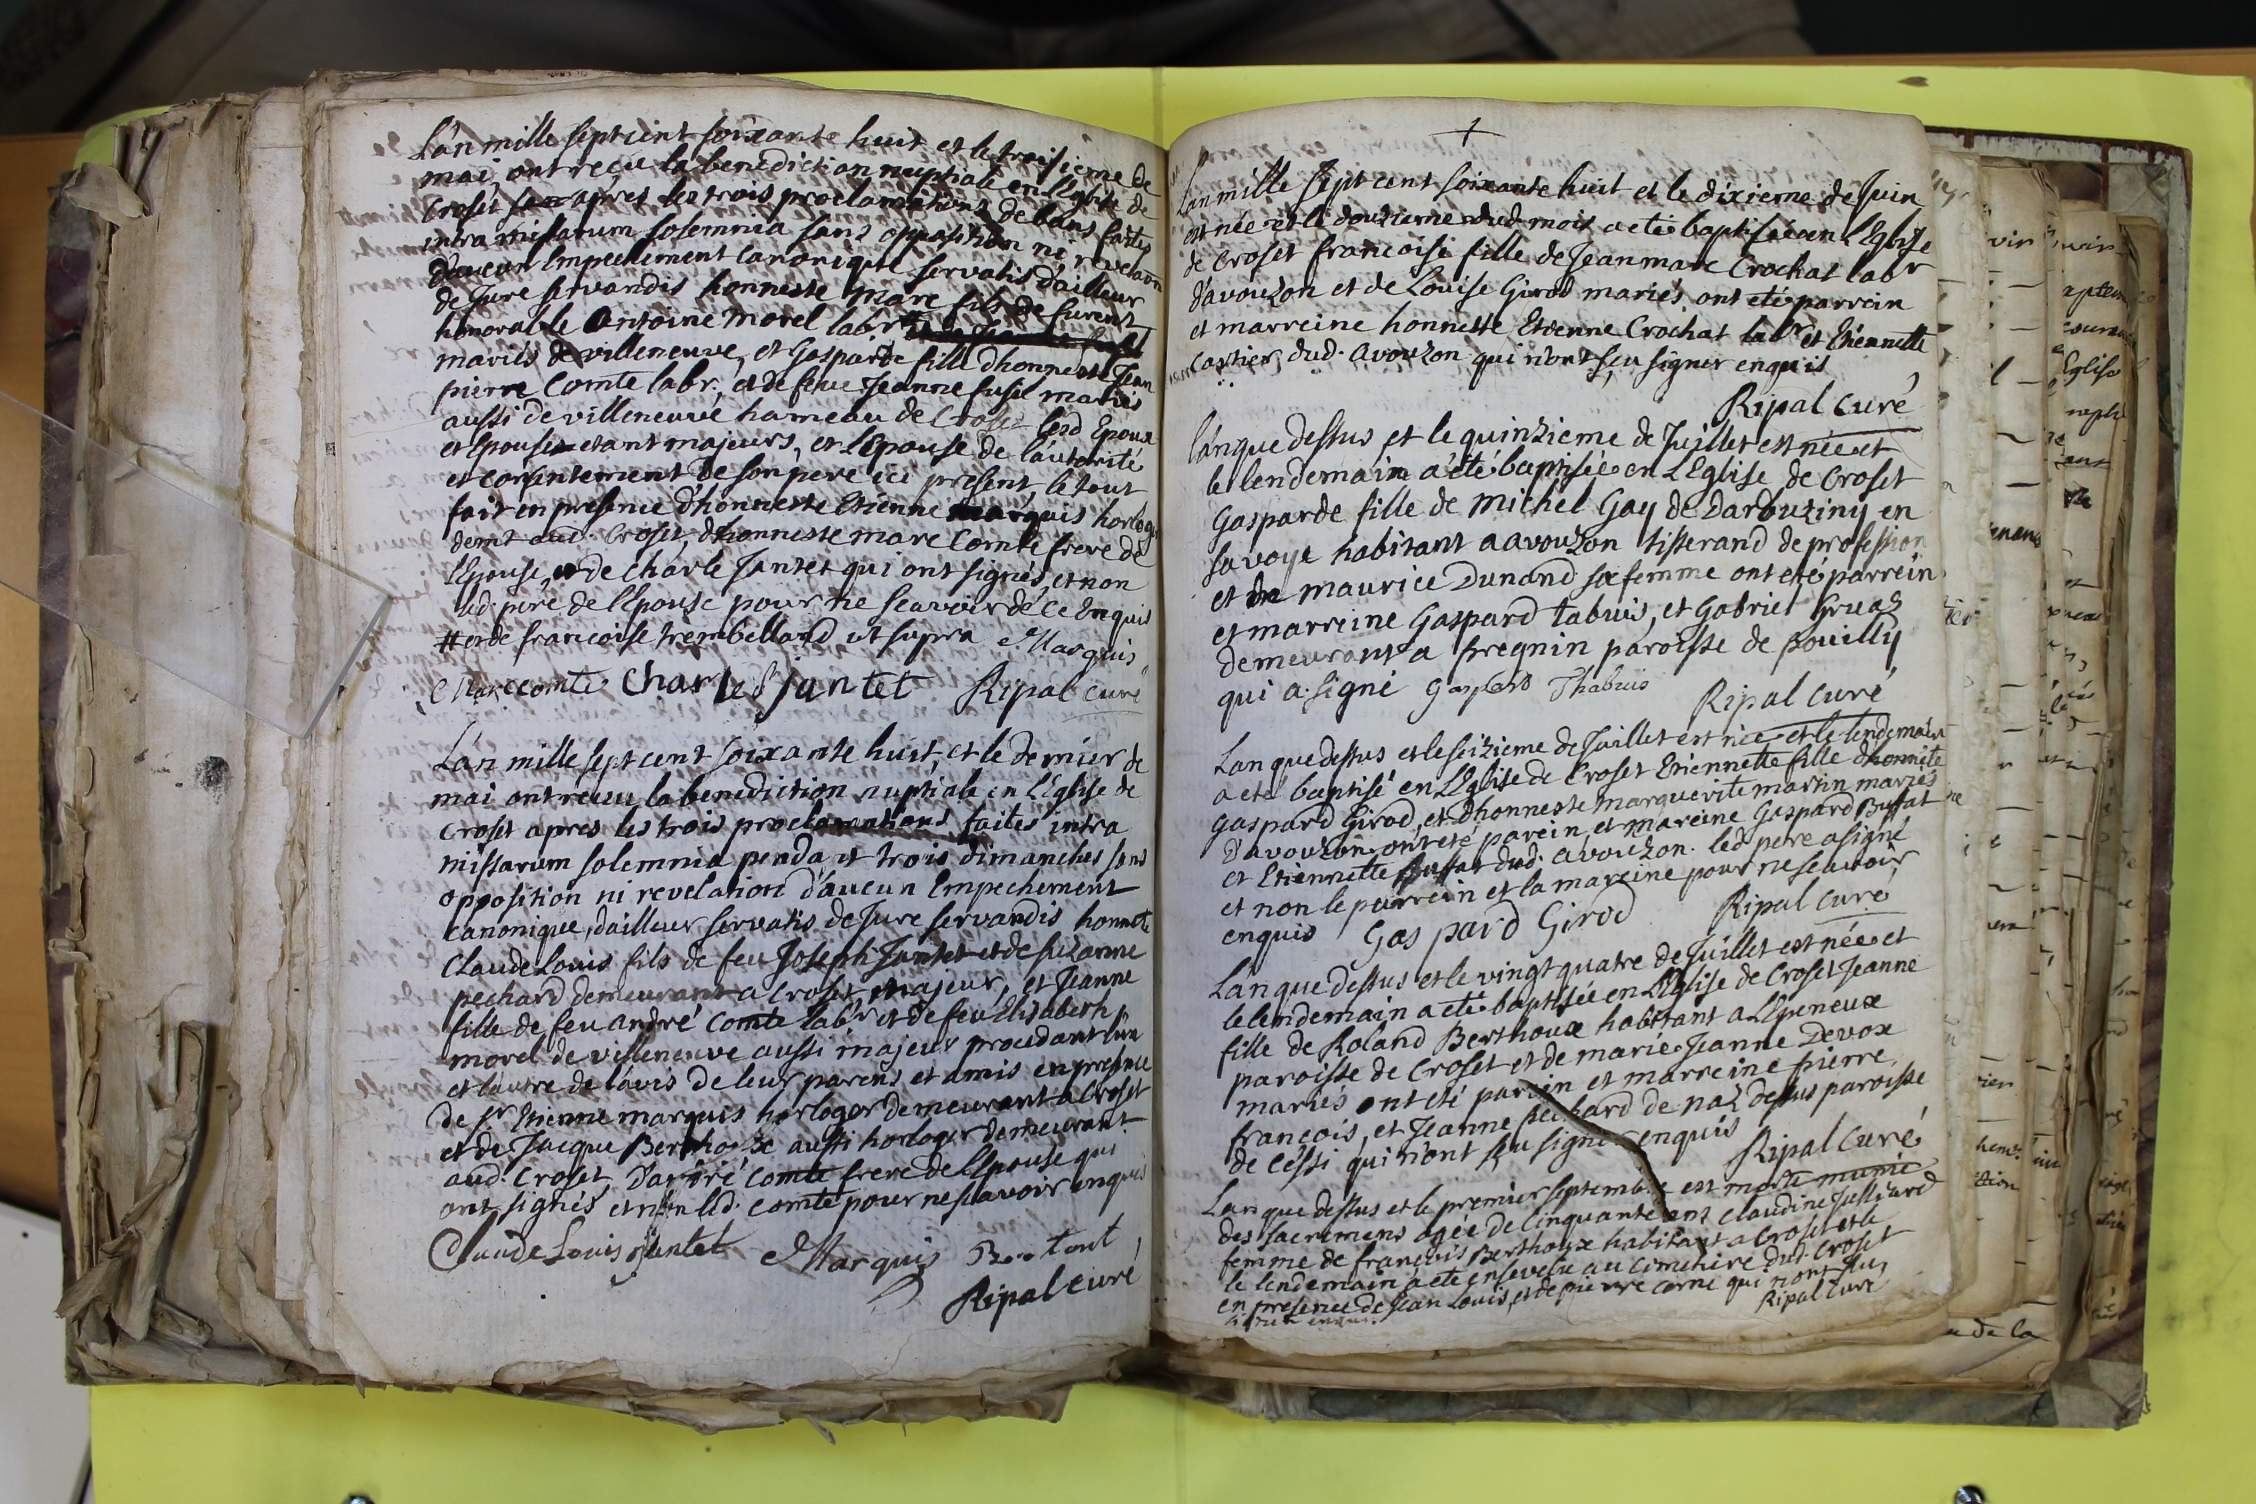 L'an mille sept cent soixante huit et le troisieme de
mai, ont reçu la benediction nuptiale en l'Eglise de
Croset apres les trois proclamations de bans faites
intra missarum solemnia sans opposition ni revelaõn
d'aucun Empechement Canonique servatis d'ailleur
de Jure servandis honneste marc fils de furent
honorable Antoine morel labr
mariés de villeneuve, et Gasparde fille dhonneste Jean
pierre Comte labr. et de feue Jeanne fusil mariés
aussi de villeneuve hameau de Croset lesd Epoux
et Epouse etant majeurs, et l'Epouse de l'autorité
et consentement de son pere ici present, le tout
fait en presence d'honneste Etienne marquis horloger
demt aud. Croset, d'honneste marc Comte frere de
l'Epouse, et de Charle Jantet qui ont signés, et non
led. pere de l'Epouse pour ne scavoir de ce Enquis
# et de francoise trembelland ut supra Marquis
Marc comte Charle Jantet Ripal curé
L'an mille sept cent soixante huit, et le dernier de
mai ont recu la benediction nuptiale en l'Eglise de
Croset apres les trois proclamations faites intra
missarum solemnia pendant trois dimanches sans
opposition ni revelation d'aucun Empechement
canonique, d'ailleur servatis de Jure servandis honnete
Claude Louis fils de feu Joseph Jantet et de suzanne
pechard demeurant a Croset majeur, et Jeanne
fille de feu andré Comte labr et de feu Elisabeth
morel de villeneuve aussi majeur procedant l'un
et l'autre de l'avis de leur parens et amis en presence
de sr. Etienne marquis horloger demeurant a Croset
et de Jacque Berthoux aussi horloger demeurant
aud. Croset, D'andré Comte frere de l'Epouse qui
ont signés et non led. Comte pour ne scavoir enquis
Claude Louis Jantet Marquis
Ripal curé
+
L'an mille sept cent soixante huit et le dixieme de Juin
est née et le douzieme dud. mois a eté baptisée en l'Eglise
de Croset francoise fille de Jean marc Crochat labr
d'avouzon et de Louise Girod mariés, ont eté parrein
et marreine honneste Etienne Crochat labr. et Etiennette
Cartier dud. avouzon qui n'ont seu signer enquis
Ripal curé
l'an que dessus, et le quinzieme de Juillet est née et
le lendemain a été baptisée en l'Eglise de Croset
Gasparde fille de Michel Gay de Darbuziny en
savoye habitant a avouzon tisserand de profession
et de maurice Dunand sa femme ont eté parrein
et marreine Gaspard tabuis, et Gabriel Gruaz
demeurant a fregnin paroisse de pouilly
qui a signé Gaspard Thabuis Ripal curé
L'an que dessus et le seizieme de Juillet est née et le lendemain
a eté baptisé en l'Eglise de Croset Etiennette fille d'honnête
gaspard Girod, et d'honneste marguerite martin mariés
d'avouzon ont eté parein et mareine Gaspard Buffat
et Etiennette Buffat dud. avouzon. led. pere a signé
et non le parrein et la mareine pour ne scavoir
enquis Gaspard Girod Ripal curé
L'an que dessus et le vingt quatre de Juillet est née et
le lendemain a eté baptisée en l'Eglise de Croset Jeanne
fille de Roland Berthoux habitant a l'Epeneux
paroisse de Croset et de marie Jeanne Devox
mariés ont eté parrein et marreine pierre
francois, et Jeanne pechard de naz dessus paroisse
de Cessi qui n'ont seu signer enquis Ripal curé
L'an que dessus et le premier septembre est morte munie
des sacremens agée de cinquante ans Claudine Julliard
femme de francois Berthoux habitant a Croset et le
le lendemain a eté ensevelie au cimetiere dud. Croset
en presence de Jean Louis, et de pierre corne qui n'ont su
Ripal curé